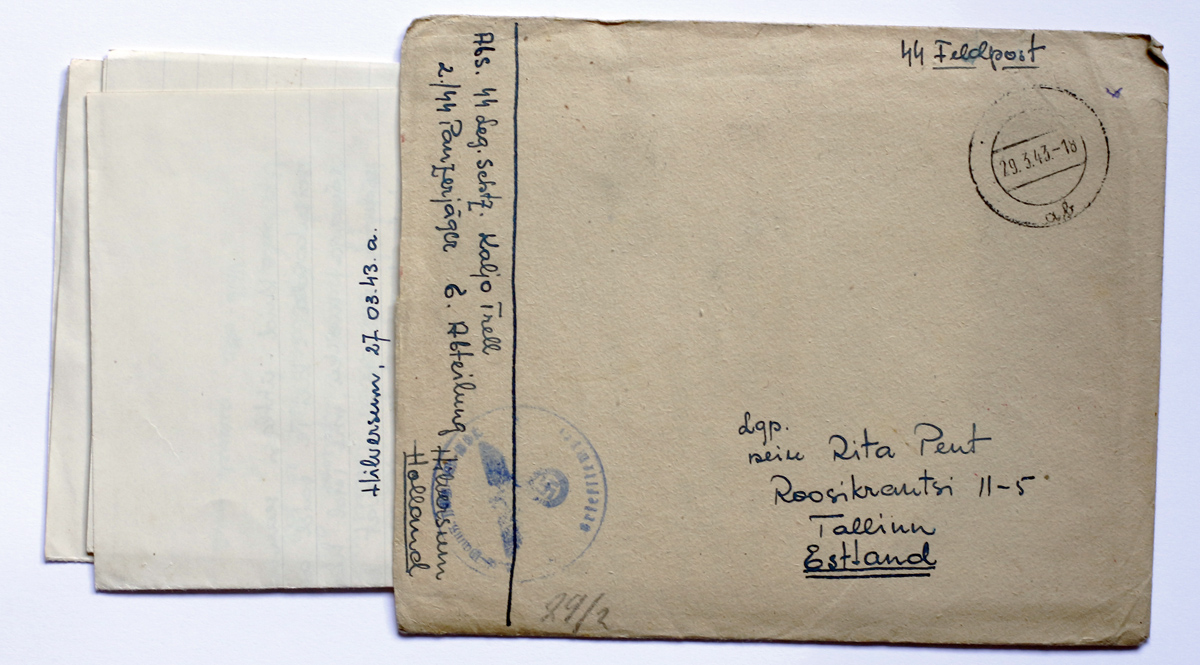 Hilversum, 27 03.43. a.
Abs. 44 Leg. Schtz. Kaljo Trell
2./44 Panzerjäger 6. Abteilung
Hilversum
Holland
44 Feldpost
29.3.43.-18
ab
Lgp.
Rita Pent
Roosikrantsi 11-5
Tallinn
Estland
29/2